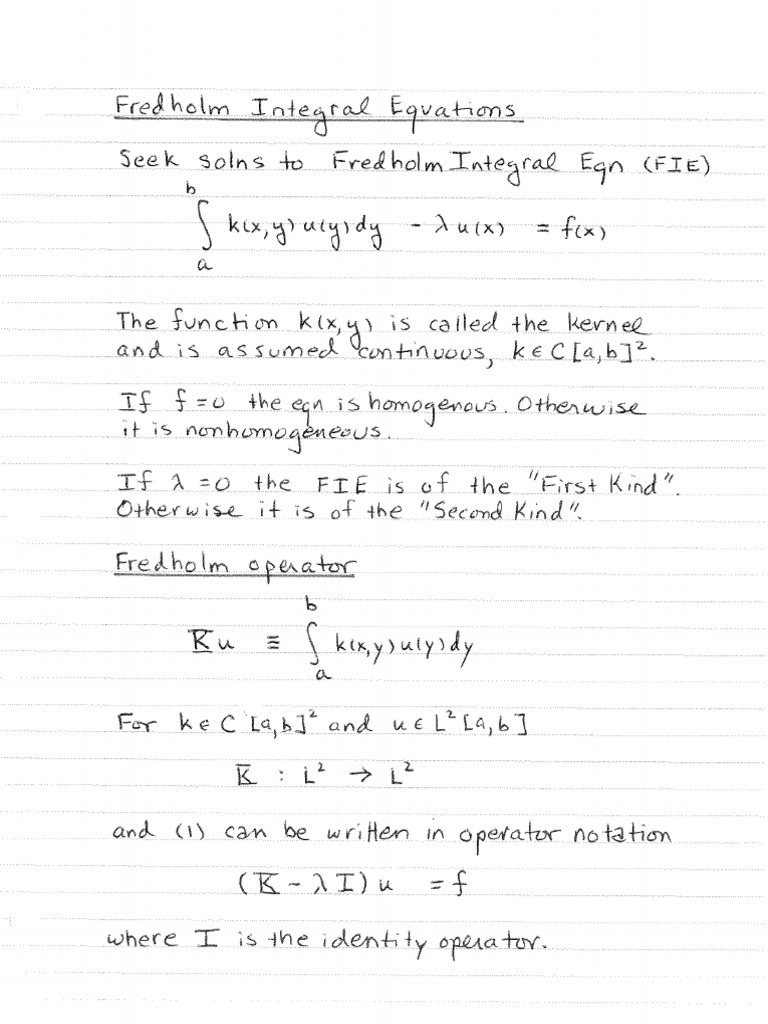 Fredholm Integral Equations
Seek solns to Fredholm Integral Eqn (FIE)
b
∫ k(x,y) u(y) dy - λ u(x) = f(x)
a
The function k(x,y) is called the kernel
and is assumed continuous, k ∈ C[a,b]².
If f=0 the eqn is homogenous. Otherwise
it is nonhomogeneous.
If λ=0 the FIE is of the "First Kind".
Otherwise it is of the "Second Kind".
Fredholm operator
b
K̅u ≡ ∫ k(x,y) u(y) dy
a
For k ∈ C[a,b]² and u ∈ L²[a,b]
K̅ : L² → L²
and (1) can be written in operator notation
(K̅ - λI)u = f
where I is the identity operator.